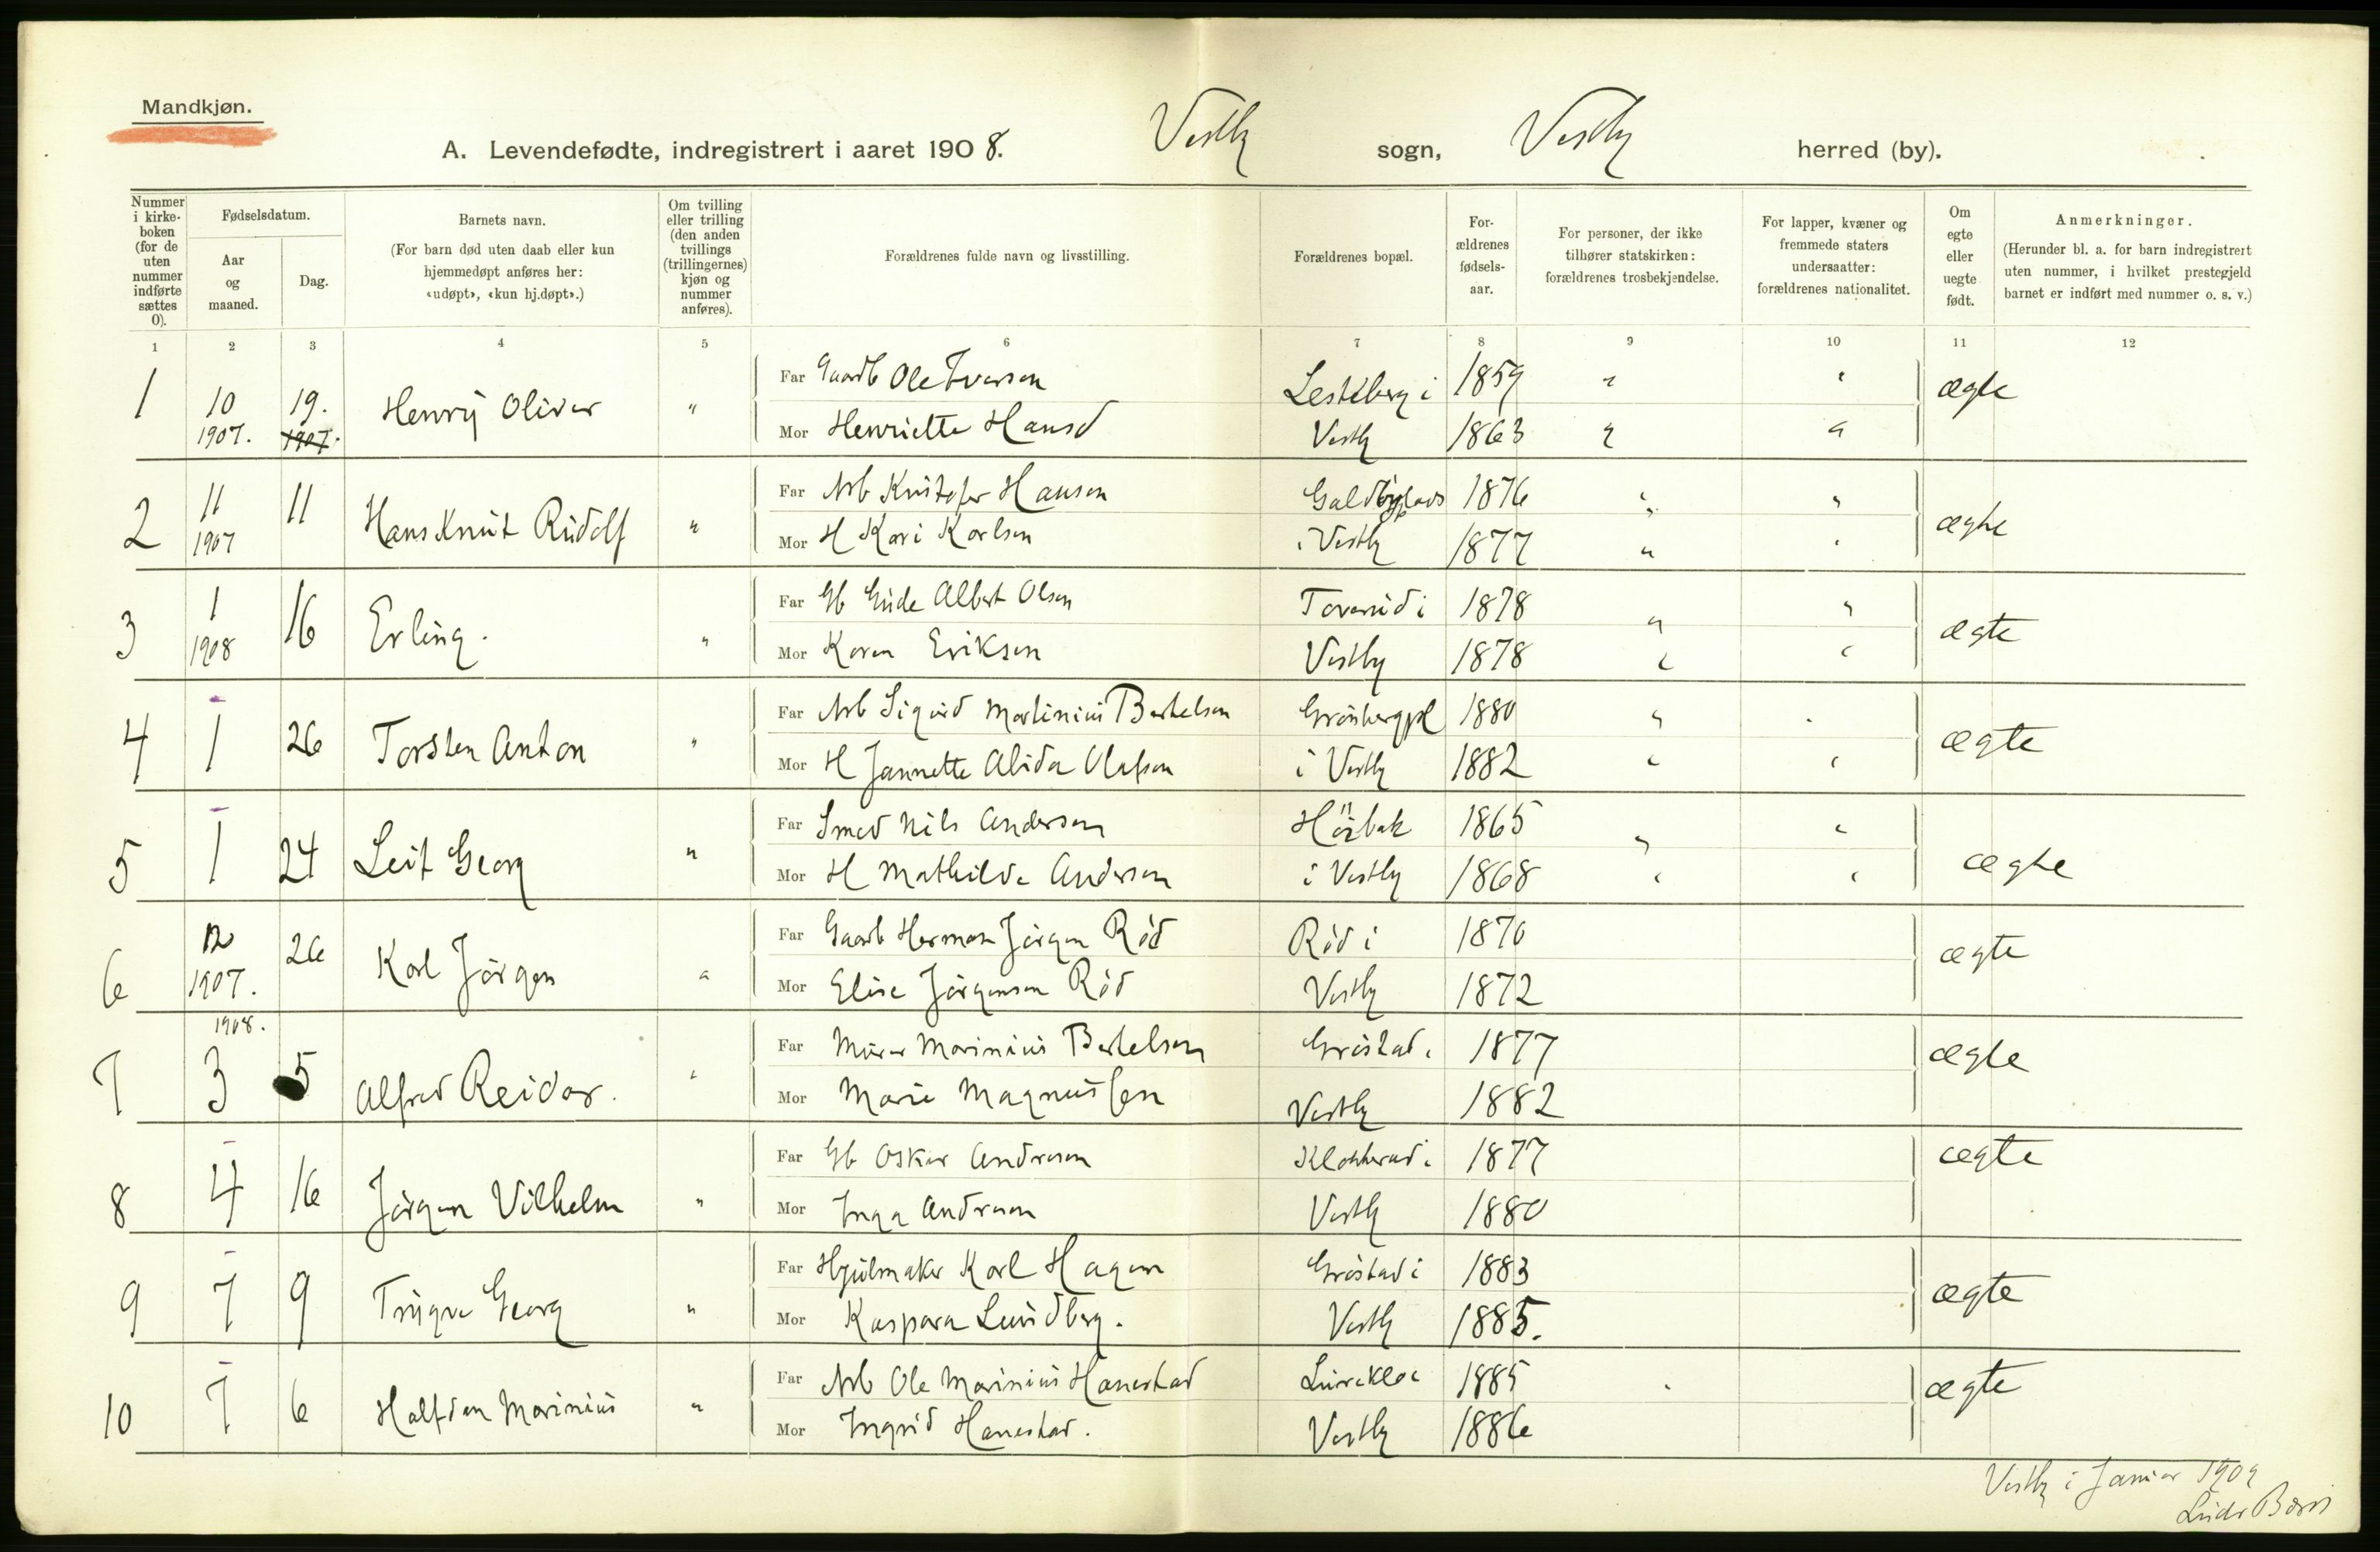 Mandkjøn.
A. Levendefødte, indregistrert i aaret 1908. Vestby sogn, Vestby herred (by).
Nummer i kirke- boken (for de uten nummer indførte sættes 0).
Fødselsdatum.
Aar og maaned.
Dag.
Barnets navn.
(For barn død uten daab eller kun hjemmedøpt anføres her: «udøpt», «kun hj.døpt».)
Om tvilling eller trilling (den anden tvillings (trillingernes) kjøn og nummer anføres).
Forældrenes fulde navn og livsstilling.
Forældrenes bopæl.
For- ældrenes fødsels- aar.
For personer, der ikke tilhører statskirken: forældrenes trosbekjendelse.
For lapper, kvæner og fremmede staters undersaatter: forældrenes nationalitet.
Om egte eller uegte født.
Anmerkninger.
(Herunder bl. a. for barn indregistrert uten nummer, i hvilket prestegjeld barnet er indført med nummer o. s. v.)
1 2 3 4 5 6 7 8 9 10 11 12
1 10 1907. 19. 1907. Henrij Oliver " Far Gaardb Ole Iversen 1859 " " ægte
Mor Henriette Hansd Vestby 1863 " "
2 11 1907 11 Hans Knut Rudolf " Far Arb Kristofer Hansen 1876 " " ægte
Mor H Kari Karlsen i Vestby 1877 " "
3 1 1908 16 Erling. " Far Gb Gude Albert Olsen Toverud i 1878 " " ægte
Mor Karen Eriksen Vestby 1878 " "
4 1 26 Torsten Anton " Far Arb Sigurd Martinius Bertelsen Grønbergpl 1880 " " ægte
Mor H Jannette Alida Olafsen i Vestby 1882 " "
5 1 24 Leif Georg " Far Smed Nils Andersen 1865 " " ægte
Mor H Mathilde Andersen i Vestby 1868 " "
6 12 1907. 26 Karl Jørgen " Far Gaardb Herman Jørgen Rød Rød i 1870 ægte
Mor Elise Jørgensen Rød Vestby 1872
7 1908. 3 5 Alfred Reidar. " Far Murer Marinius Bertelsen Grøstad i 1877 ægte
Mor Marie Magnussen Vestby 1882
8 4 16 Jørgen Vilhelm " Far Gb Oskar Andresen Klokkerud i 1877 ægte
Mor Inga Andresen Vestby 1880
9 7 9 Trygve Georg " Far Hjulmaker Karl Hagen Grøstad i 1883 ægte
Mor Kaspara Lundberg. Vestby 1885.
10 7 6 Halfdan Marinius " Far Arb Ole Marinius Hanestad 1885 ægte
Mor Ingrid Hanestad. Vestby 1886
Vestby i Januar 1909